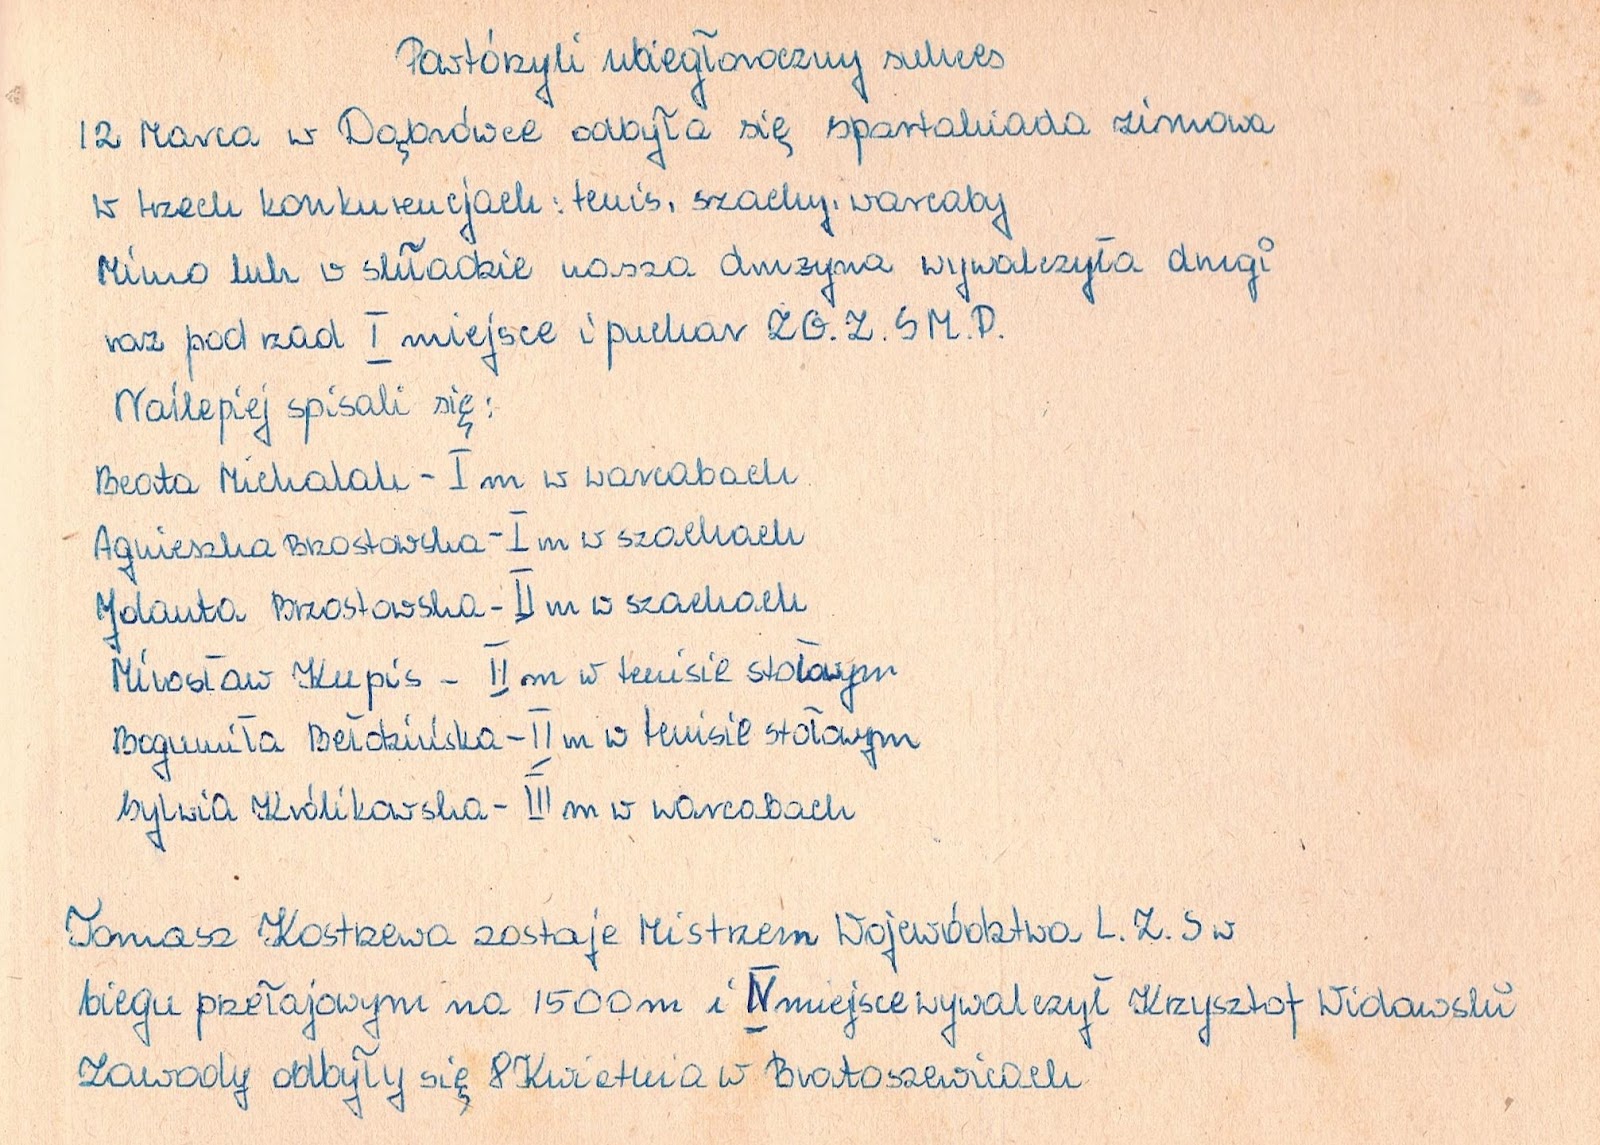 Powtórzyli ubiegłoroczny sukces
12 Marca w Dąbrówce odbyła się spartakiada zimowa
w trzech konkurencjach: tenis, szachy, warcaby
Mimo luk w składzie nasza drużyna wywalczyła drugi
raz pod rzad I miejsce i puchar ZG. Z. S M. P.
Najlepiej spisali się:
Beata Michalak - I m w warcabach
Agnieszka Brzostowska - I m w szachach
Jolanta Brzostowska - II m w szachach
Mirosław Kupis - II m w tenisie stołowym
Bogumiła Bełdzińska - II m w tenisie stołowym
Sylwia Królikowska - III m w warcabach
Tomasz Kostrzewa zostaje Mistrzem Województwa L. Z. S w
biegu przełajowym na 1500 m i IV miejsce wywalczył Krzysztof Widawski
Zawody odbyły się 8 Kwietnia w Bratoszewicach